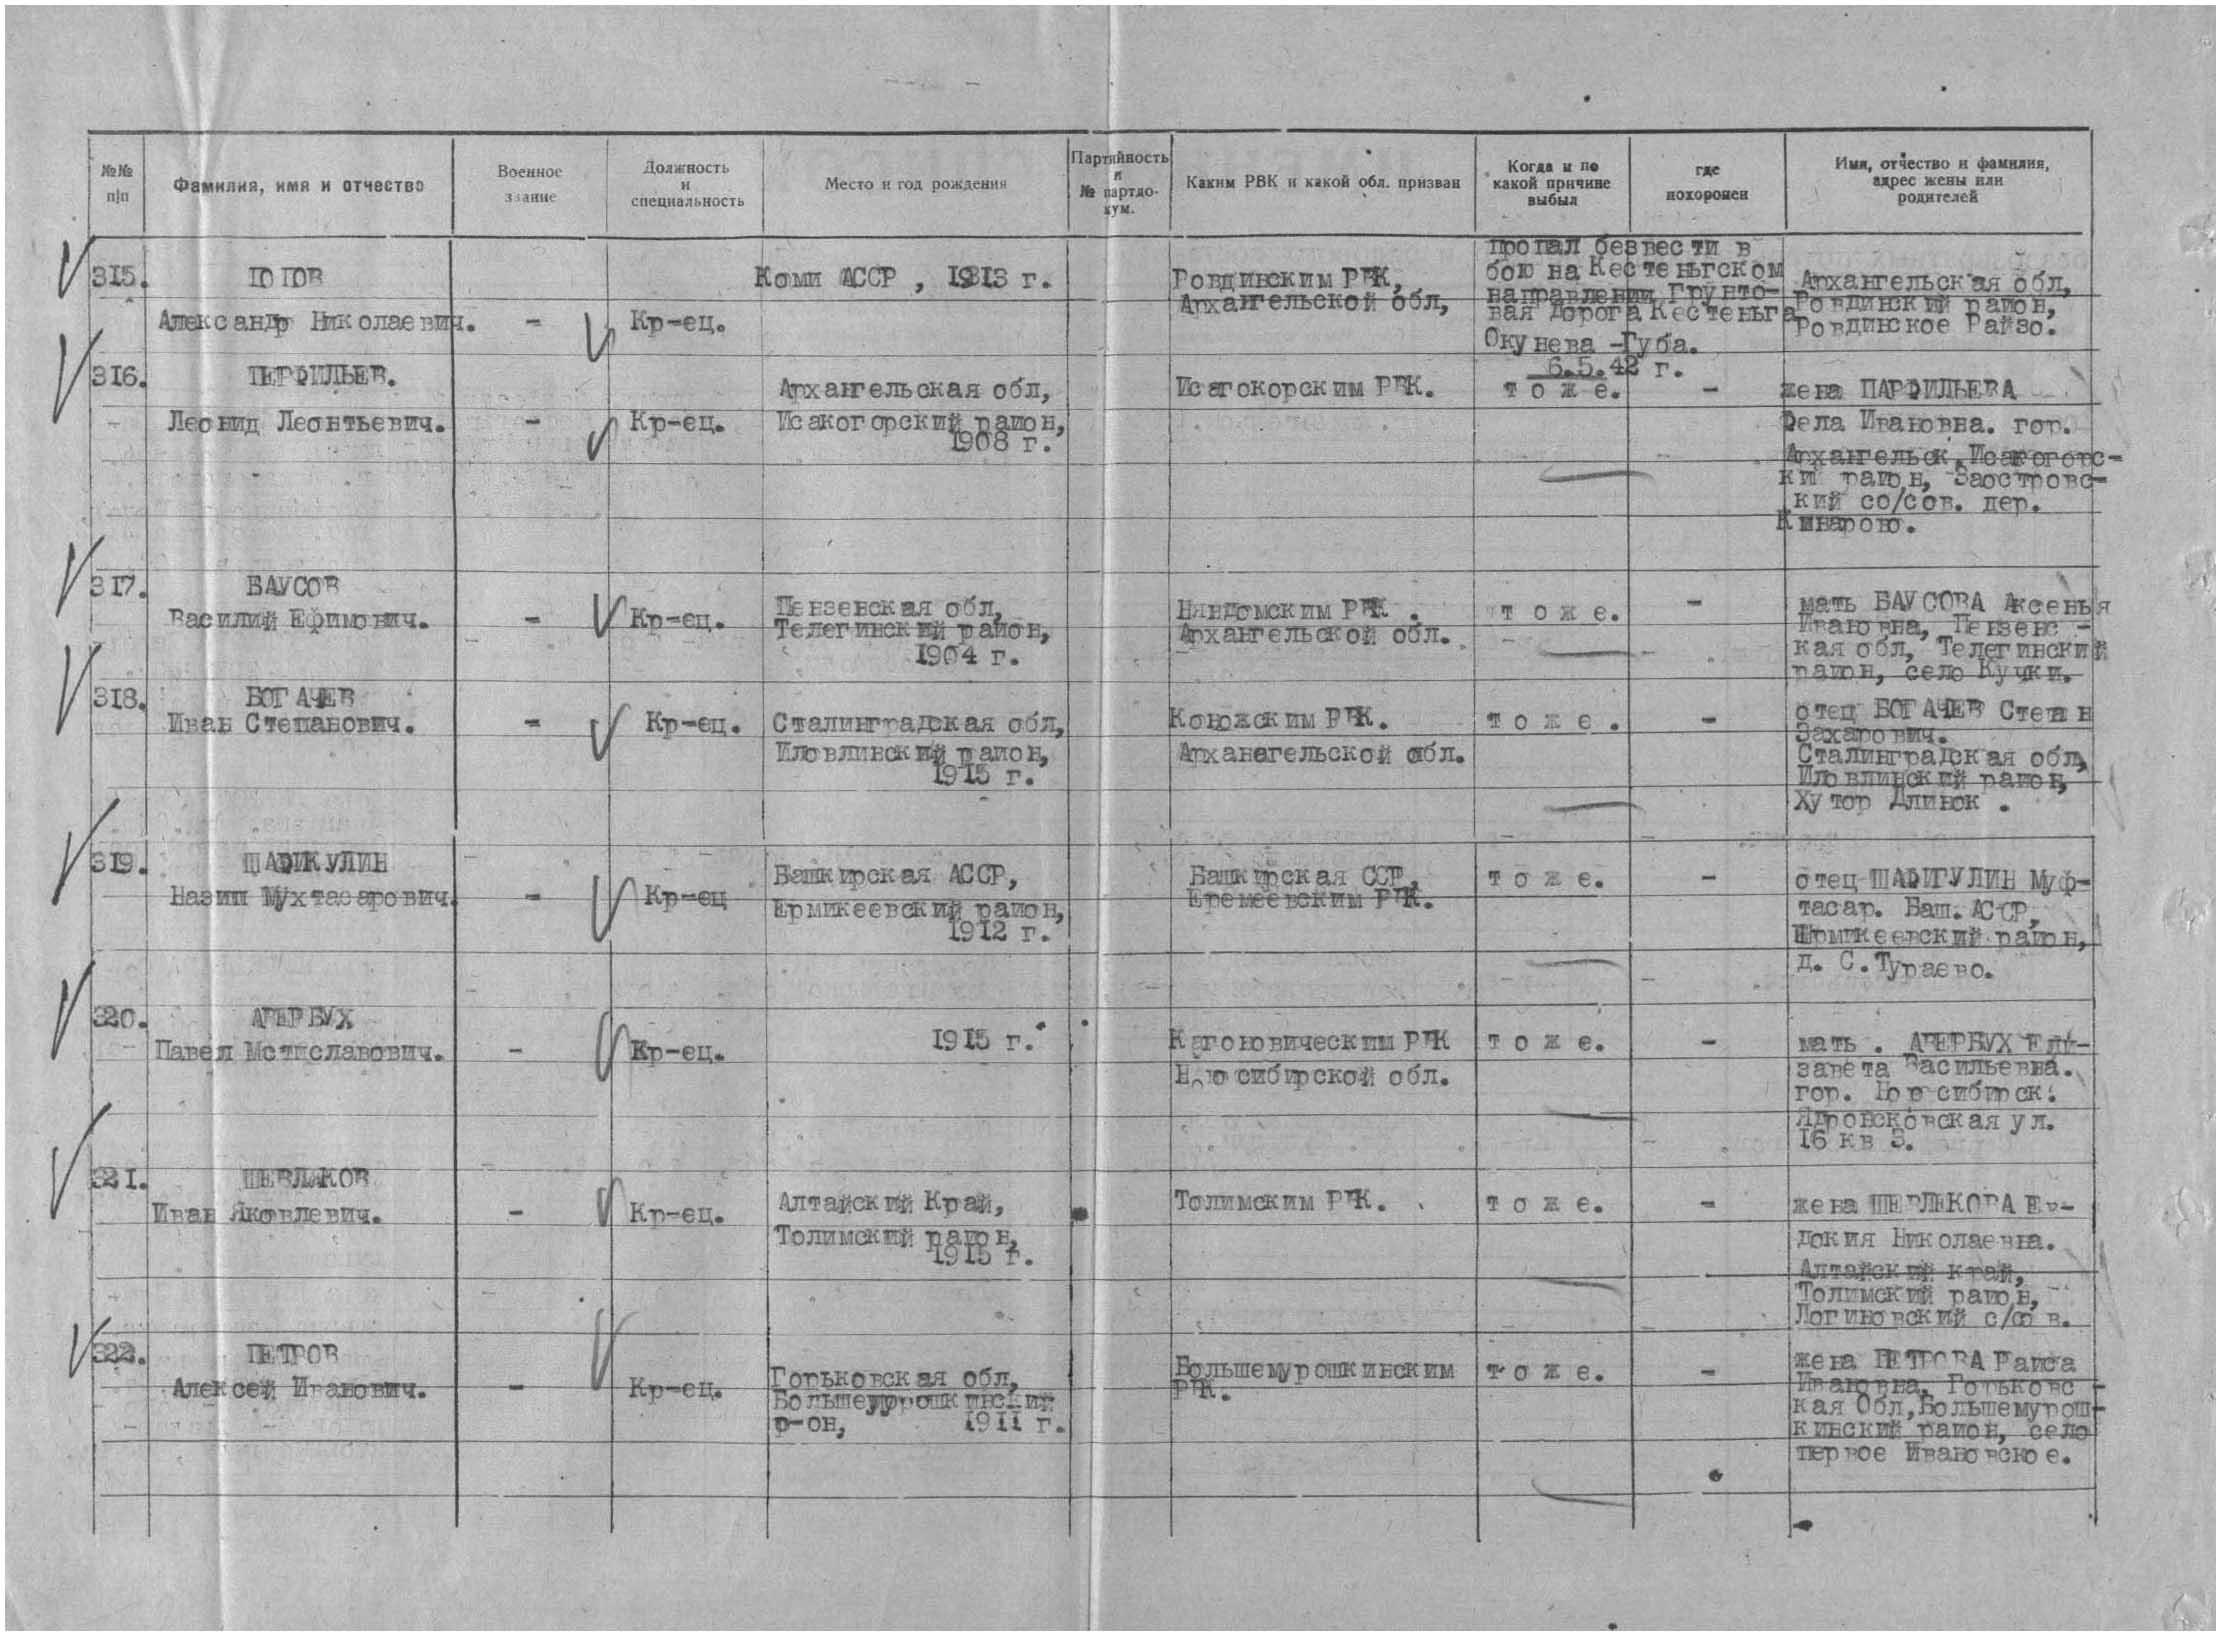 №№ п/п
Фамилия, имя и отчество
Военное звание
Должность и специальность
Место и год рождения
Партийность и № партдокум.
Каким РВК и какой обл. призван
Когда и по какой причине выбыл
где похоронен
Имя, отчество и фамилия, адрес жены или родителей
315.
ПОПОВ
Александр Николаевич.
-
Кр-ец.
Коми АССР , 1913 г.
Ровдинским РВК,
Архангельской обл,
пропал безвести в
бою на Кестеньгском
направлении Грунто-
вая дорога Кестеньга
Окунева -Губа.
6.5.42 г.
Архангельская обл,
Ровдинский район,
Ровдинское Райзо.
316.
ПЕРФИЛЬЕВ.
Леонид Леонтьевич.
-
Кр-ец.
Архангельская обл,
Исакогорский район,
1908 г.
Исагокорским РВК.
т о ж е.
-
жена ПАРФИЛЬЕВА
Фела Ивановна. гор.
Архангельск, Исакогорс-
кий район, Заостровс-
кий со/сов. дер.
Кинарою.
317.
БАУСОВ
Василий Ефимович.
-
Кр-ец.
Пензенская обл,
Телегинский район,
1904 г.
Няндомским РВК .
Архангельской обл.
т о ж е.
-
мать БАУСОВА Аксенья
Ивановна, Пензенс -
кая обл, Телегинский
район, село Кучки.
318.
БОГАЧЕВ
Иван Степанович.
-
Кр-ец.
Сталинградская обл,
Иловлинский район,
1915 г.
Коножским РВК.
Арханагельской обл.
т о ж е .
-
отец БОГАЧЕВ Степан
Захарович.
Сталинградская обл,
Иловлинский район,
Хутор Длинок .
319.
ШАФИКУЛИН
Назип Мухтасарович.
-
Кр-ец
Башкирская АССР,
Ермикеевский район,
1912 г.
Башкирская ССР,
Еремеевским РВК.
т о ж е.
-
отец ШАФИГУЛИН Муф-
тасар. Баш. АССР,
Ермикеевский район,
д. С.Тураево.
320.
АВЕРБУХ
Павел Мстиславович.
-
Кр-ец.
1915 г.
Кагоновическим РВК
Новосибирской обл.
т о ж е.
-
мать . АВЕРБУХ Ели-
завета Васильевна.
гор. Новосибирск.
Ядровсковская ул.
16 кв 3.
321.
ШЕВЛЯКОВ
Иван Яковлевич.
-
Кр-ец.
Алтайский Край,
Толимский район,
1915 г.
Толимским РВК.
т о ж е.
-
жена ШЕВЛЕКОВА Ев-
докия Николаевна.
Алтайский край,
Толимский район,
Логиновский с/сов.
322.
ПЕТРОВ
Алексей Иванович.
-
Кр-ец.
Горьковская обл,
Большемурошкинский
р-он, 1911 г.
Большемурошкинским
РВК.
т о ж е.
-
жена ПЕТРОВА Раиса
Ивановна, Горьковс -
кая Обл, Большемурош-
кинский район, село
первое Ивановское.